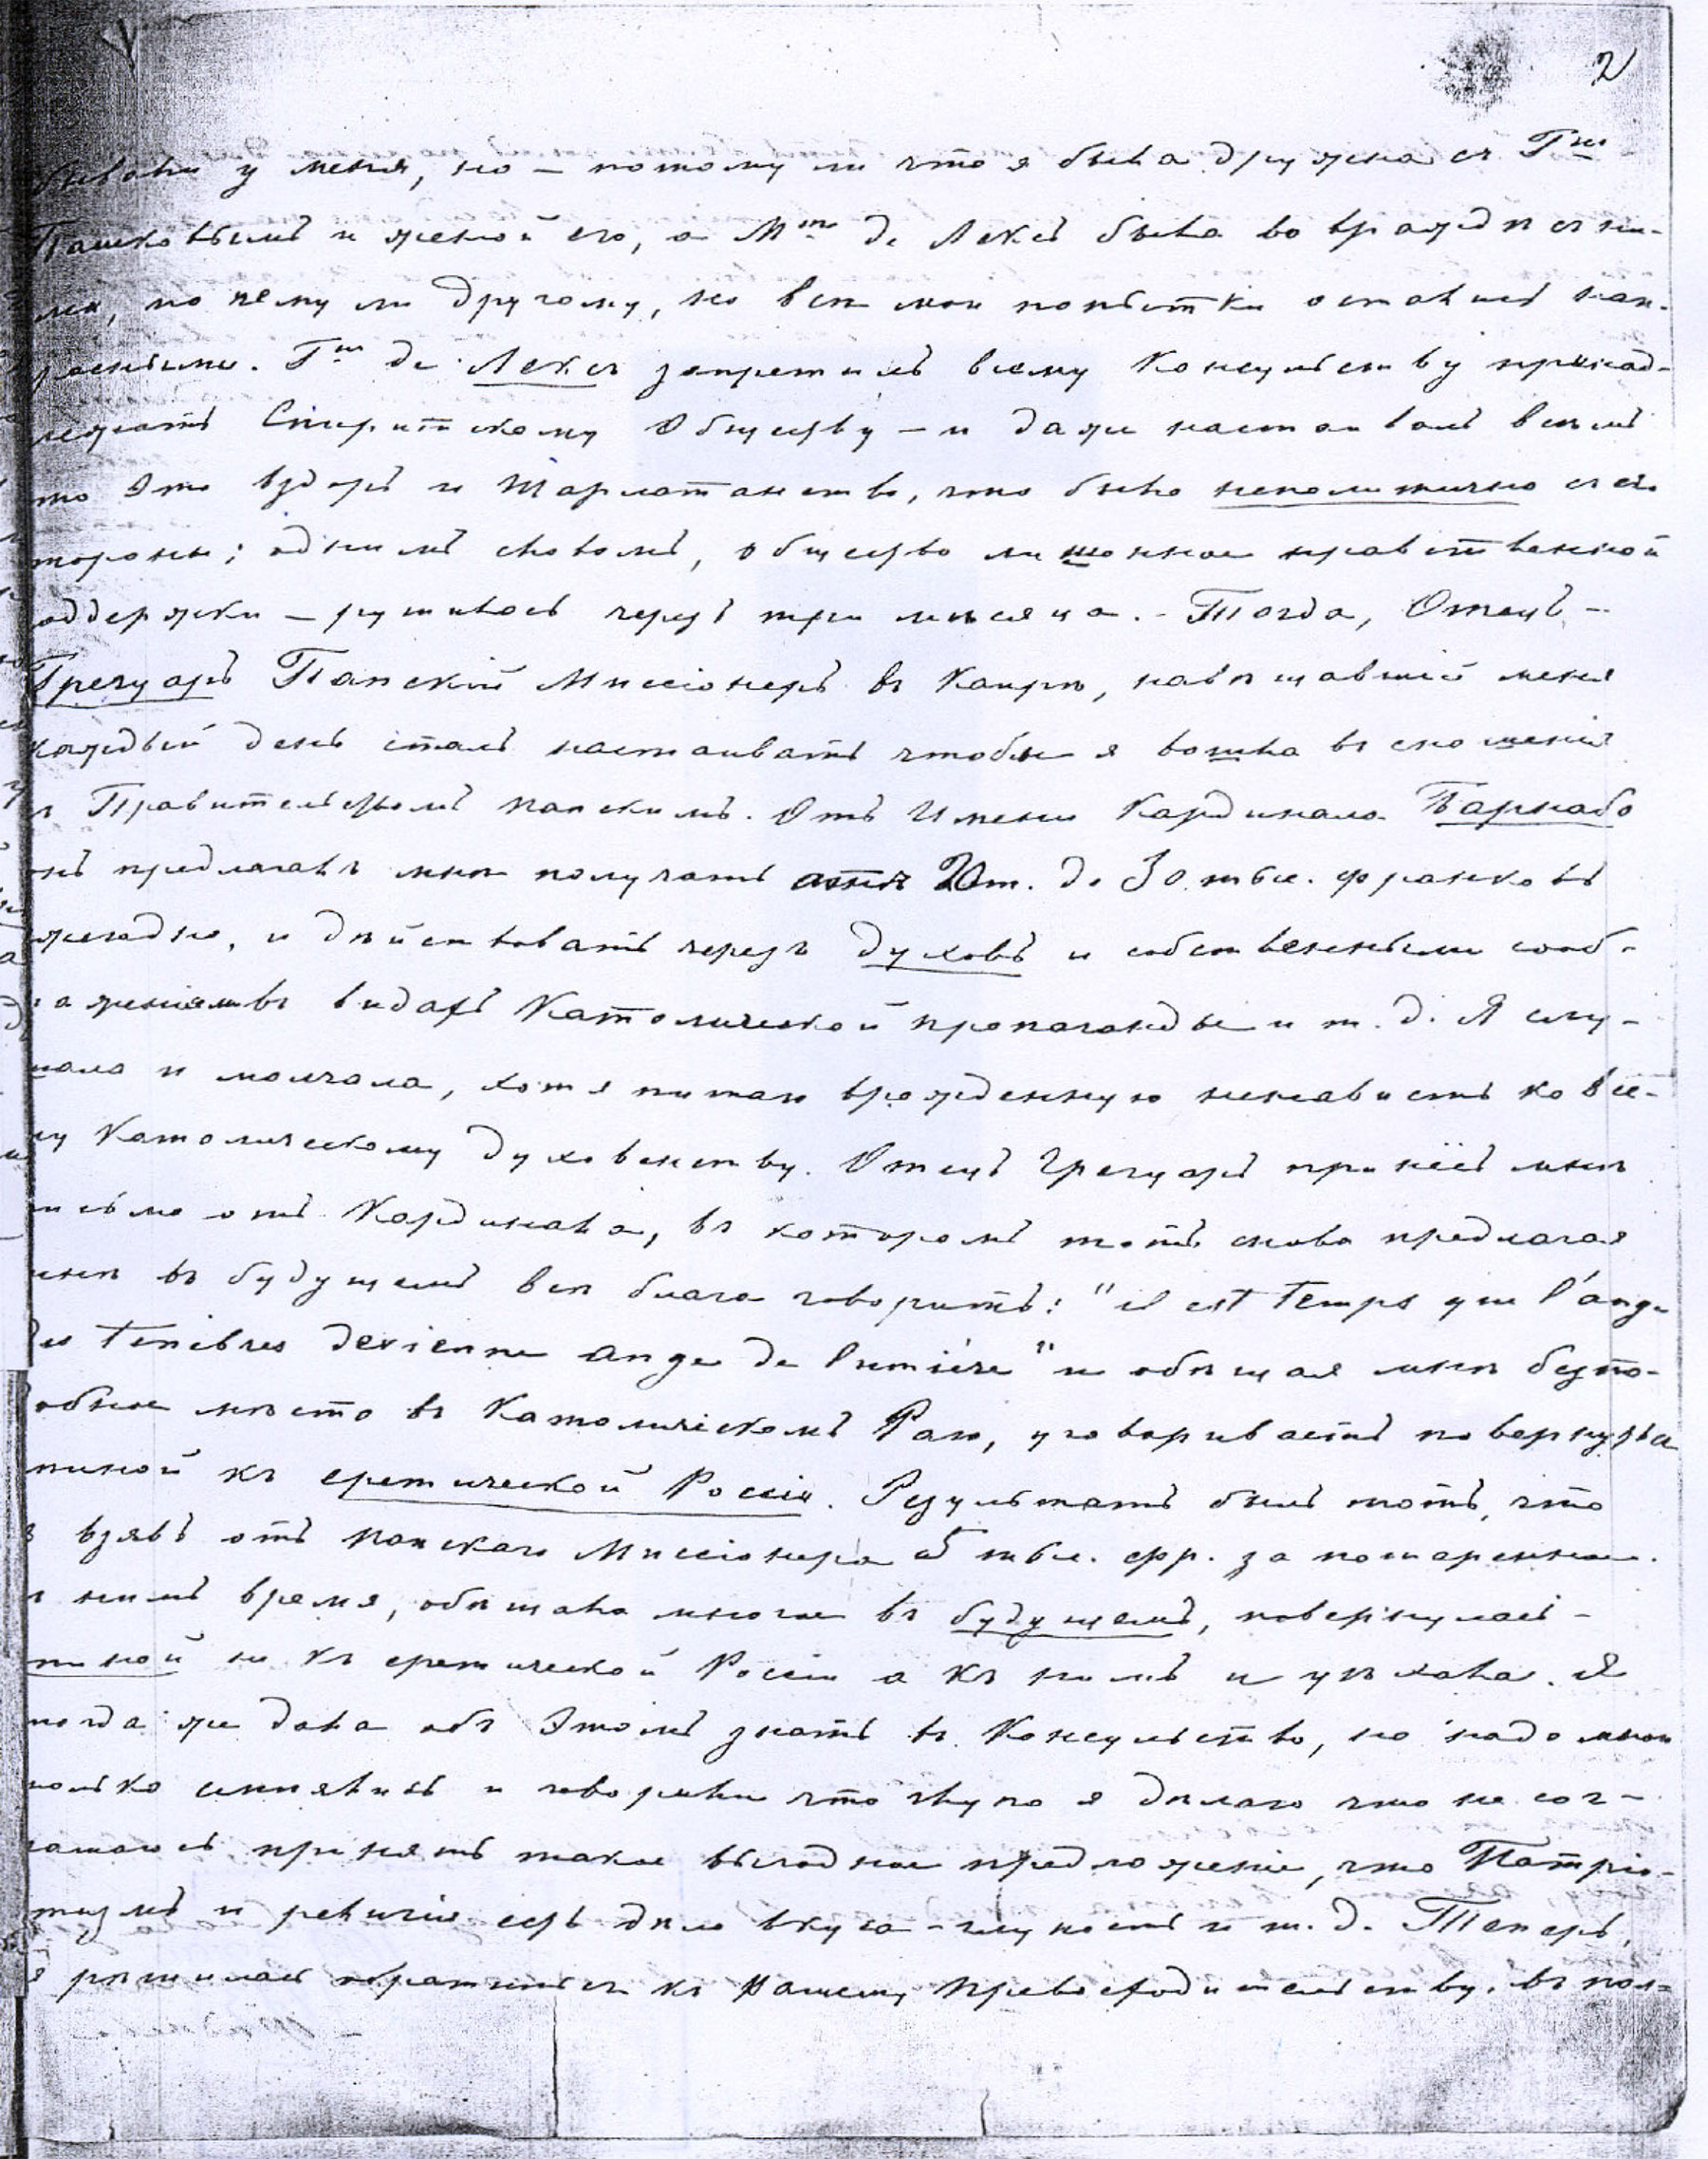 2
бывали у меня, но – потому ли что я была дружна съ Гмъ
Пашковымъ и женой его, а Mme де Лексъ была во враждѣ съ ни-
ми, по чему ли другому, но всѣ мои попытки остались нап-
расными. Гнъ де Лексъ запретилъ всему Консульству принад-
лежать Спиритскому Обществу – и даже настаивалъ всѣмъ
что это вздоръ и шарлатанство, что было неполитично съ его
стороны; однимъ словомъ, общество лишонное нравственной
поддержки – рушилось черезъ три мѣсяца. – Тогда, Отецъ –
Грегуаръ Папскій Миссіонеръ въ Каирѣ, навѣщавшій меня
каждый день сталъ настаивать чтобы я вошла въ сношенія
съ Правительствомъ папскимъ. Отъ Имени Кардинала Барнабо
онъ предлагалъ мнѣ получать 20 т. до 30 тыс. франковъ
ежегодно, и дѣйствовать черезъ духовъ и собственными сооб-
раженіями въ видахъ Католической пропаганды и т. д. Я слу-
шала и молчала, хотя питаю врожденную ненависть ко все-
му Католическому духовенству. Отецъ Грегуаръ принёсъ мнѣ
письмо отъ Кардинала, въ которомъ тотъ снова предлагая
мнѣ въ будущемъ всѣ блага говоритъ: "il est temps que l'ange
des tenèbres devienne ange de lumière" и обѣщая мнѣ безпо-
добное мѣсто въ Католическомъ Раю, уговариваетъ повернуться
спиной къ еретической Россіи. Результатъ былъ тотъ, что
я взявъ отъ папскаго Миссіонера 5 тыс. фр. за потеренное
съ нимъ время, обѣщала многое въ будущемъ, повернулась –
спиной не къ еретической Россіи а къ нимъ и уѣхала. Я
тогда же дала объ этомъ знать въ Консульство, но надо мною
только смѣялись и говорили что глупо я дѣлаю что не сог-
лашаюсь принять такое выгодное предложеніе, что Патріо-
тизмъ и религія есть дѣло вкуса – глупость и т. д. Теперь,
я рѣшилась обратиться къ Вашему Превосходительству. въ пол-